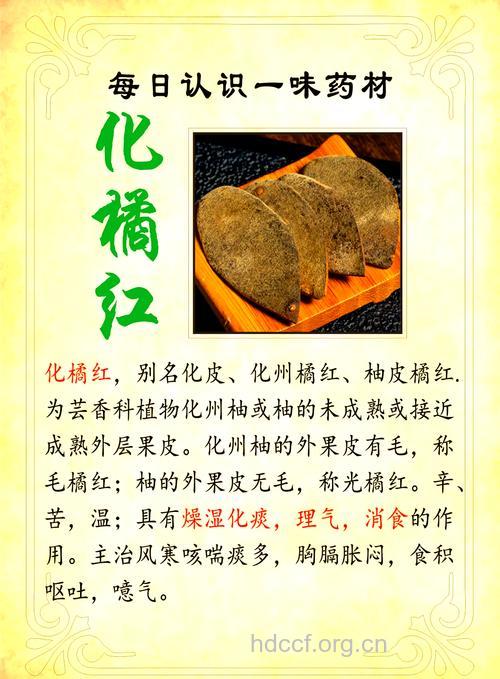 每日认识一味药材
化橘红
化橘红，别名化皮、化州橘红、柚皮橘红.
为芸香科植物化州柚或柚的未成熟或接近
成熟外层果皮。化州柚的外果皮有毛，称
毛橘红；柚的外果皮无毛，称光橘红。辛、
苦，温；具有燥湿化痰，理气，消食的作
用。主治风寒咳喘痰多，胸膈胀闷，食积
呕吐，噫气。
hdccf.org.cn